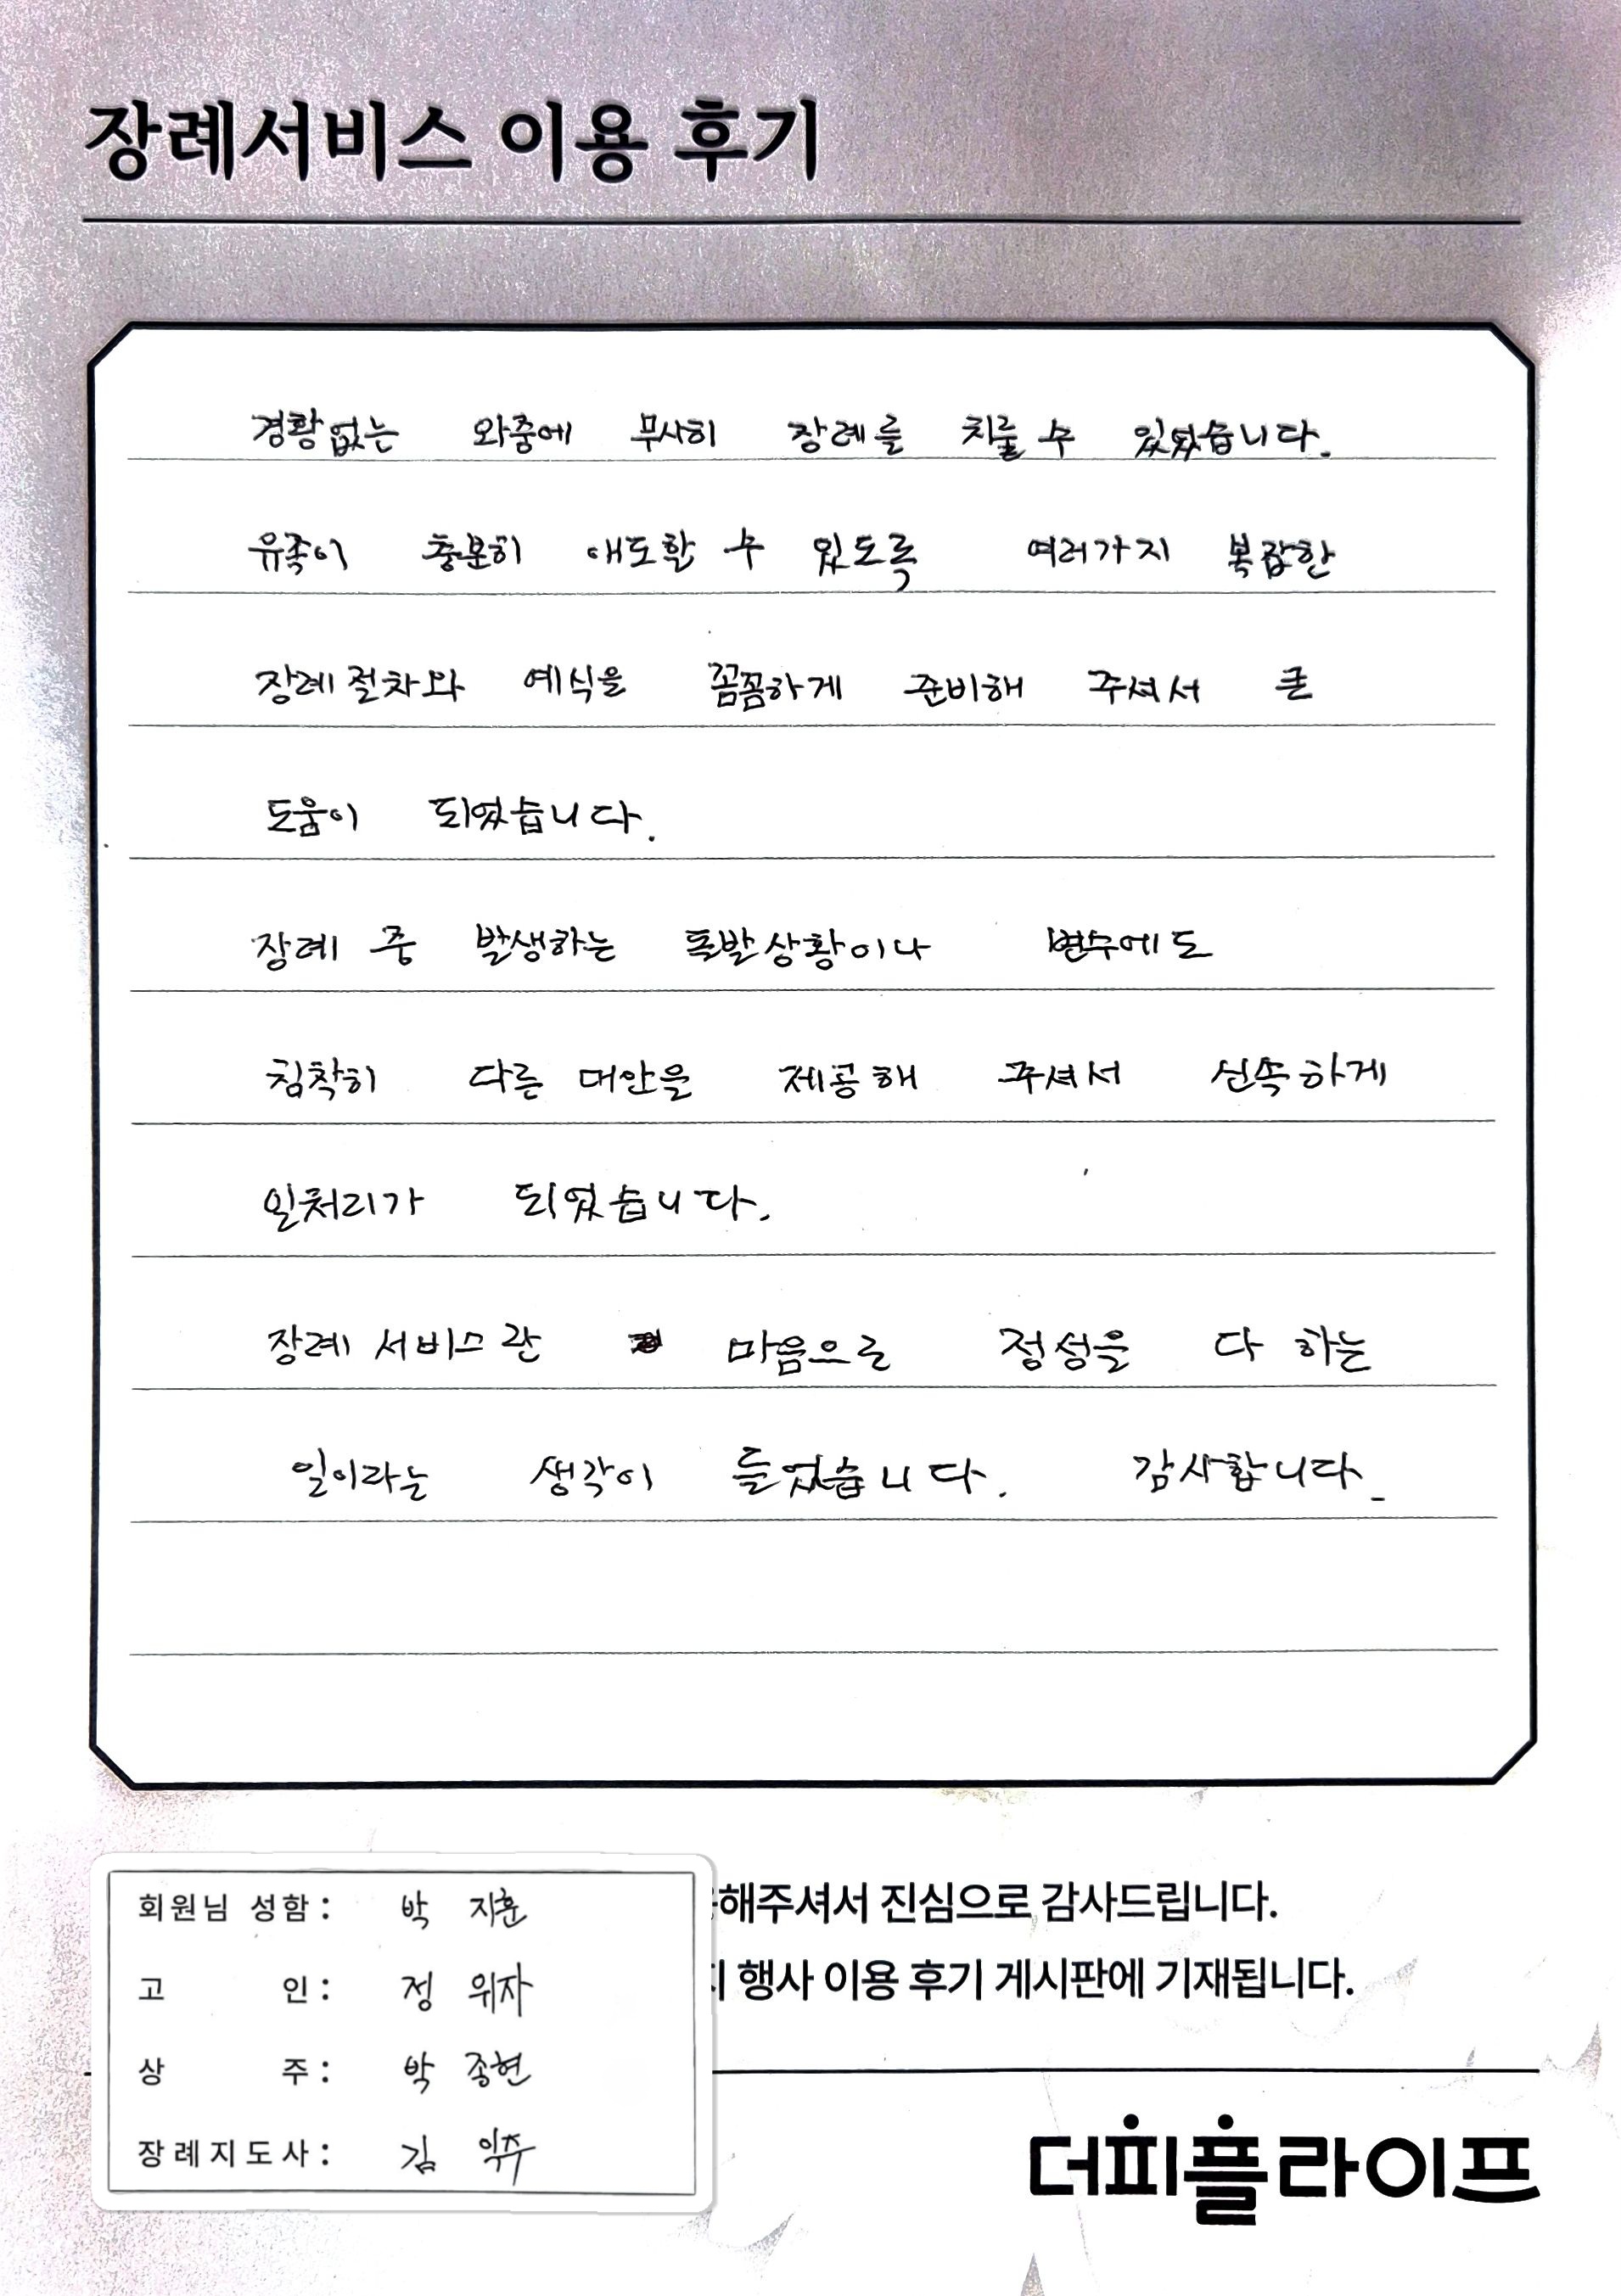 장례서비스 이용 후기
경황없는 와중에 무사히 장례를 치룰 수 있었습니다.
유족이 충분히 애도할 수 있도록 여러가지 복잡한
장례절차와 예식을 꼼꼼하게 준비해 주셔서 큰
도움이 되었습니다.
장례 중 발생하는 돌발상황이나 변수에도
침착히 다른 대안을 제공해 주셔서 신속하게
일처리가 되었습니다.
장례 서비스란 마음으로 정성을 다 하는
일이라는 생각이 들었습니다. 감사합니다.
해주셔서 진심으로 감사드립니다.
지 행사 이용 후기 게시판에 기재됩니다.
회원님 성함: 박 지훈
고 인: 정 위자
상 주: 박 종현
장례지도사: 김
더피플라이프